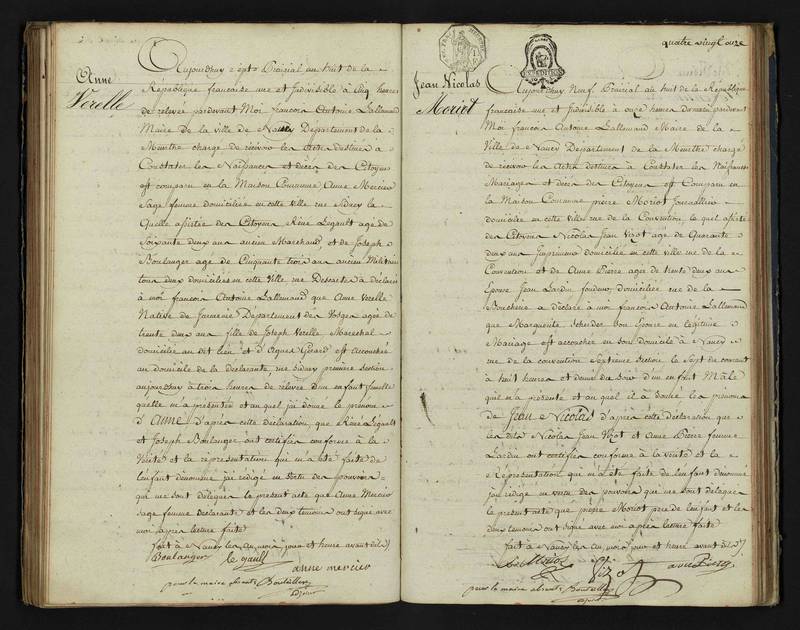 Anne
Verelle
Aujourdhuy sept Prairial an huit de la
République française une et Indivisible à cinq heures
de relevée pardevant Moi françois Antoine Lallemand
Maire de la ville de Nancy Département de la
Meurthe chargé de recevoir les Actes destinés à
Constater les Naissances et décès des Citoyens
est comparu en la Maison Commune Anne Mercier
Sage femme domiciliée en cette ville rue Sidney la
Quelle assistée des Citoyens Réné Legault agé de
Soixante deux ans ancien Marchand et de Joseph
Boulanger agé de Cinquante trois ans ancien Militaire
tous deux domiciliés en cette Ville rue Descartes à déclaré
à moi françois Antoine Lallemand que Anne Verelle
Native de Département des Vosges agée de
trente deux ans fille de Joseph Verelle Marechal
domicilié au dit lieu et d'Agnès Gérard est accouchée
au domicile de la déclarante, rue Sidney première section
aujourdhuy à trois heures de relevée d'un enfant femelle
quelle m'a présenté et auquel j'ai donné le prénom
d'Anne D'après cette déclaration, que Réné Legault
et Joseph Boulanger ont certifiée conforme à la
Vérité et la représentation qui m'a été faite de
l'enfant dénommé j'ai rédigé en vertu des pouvoirs
qui me sont délégués le présent acte que Anne Mercier
sage femme déclarante et les deux temoins ont signé avec
moi après lecture faite
fait à Nancy les an, mois, jour et heure avant dits
Boulanger le gault
anne mercier
pour le maire absent Boutellier
adjoint
quatre vingt onze
Jean Nicolas
Moriot
Aujourdhuy Neuf Prairial an huit de la République
française une et Indivisible à onze heures du matin pardevant
Moi françois Antoine Lallemand Maire de la
Ville de Nancy Département de la Meurthe chargé
de recevoir les Actes destinés à Constater les Naissances
Mariages et décès des Citoyens est Comparu en
la Maison Commune pierre Moriot Journallier
domicilié en cette ville rue de la Convention, le quel assisté
des Citoyens Nicolas Jean Vizot agé de Quarante
deux ans Imprimeur domicilié en cette ville rue de la
Convention et de Anne Pierre agée de trente deux ans
Epouse Jean Lardin fondeur, domiciliée rue de la
Boucherie a déclaré à moi françois Antoine Lallemand
que Marguerite Scherder son Epouse en légitime
Mariage est accouchée en son domicile à Nancy
rue de la convention Septieme section le Sept du courant
à huit heures et demie du soir d'un enfant Mâle
quil m'a présenté et au quel il a donné les prénoms
de Jean Nicolas d'après cette déclaration que
les dits Nicolas Jean Vizot et Anne Pierre femme
Lardin ont certifiée conforme à la vérité et la
Représentation qui m'a été faite de l'enfant dénommé
j'ai rédigé en vertu des pouvoirs que me sont délégués
le présent acte que pierre Moriot père de l'enfant et les
deux temoins ont signé avec moi après lecture faite
fait à Nancy les an, mois, jour et heure avant dits
Moriot Vizot anne Pierre
pour le maire absent Boutellier
adjoint